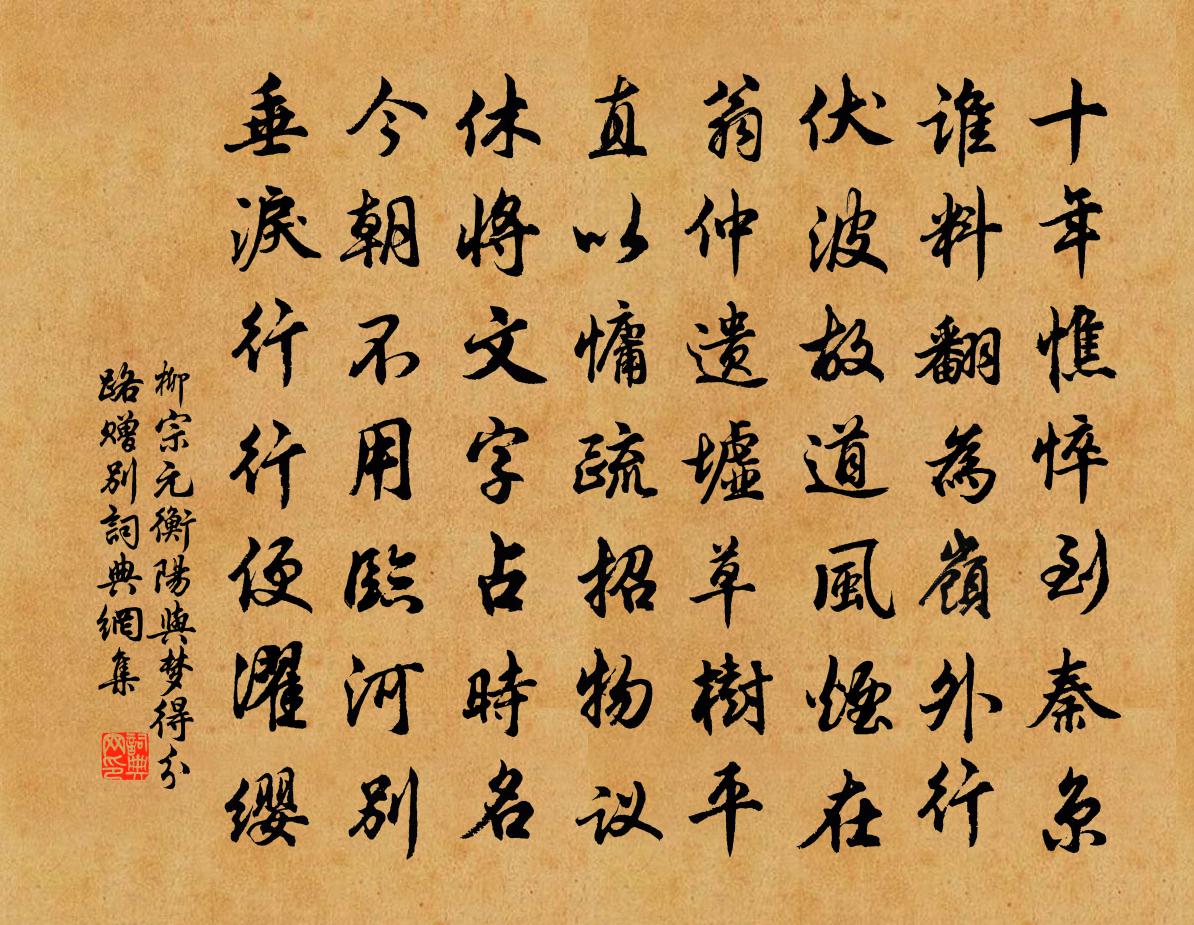 十年憔悴到秦京
誰料翻為嶺外行
伏波故道風煙在
翁仲遺墟草樹平
直以慵疏招物议
休將文字占時名
今朝不用臨河別
垂淚行行便濯纓
柳宗元衡陽與梦得分
路赠別詞典網集
詞典
网印